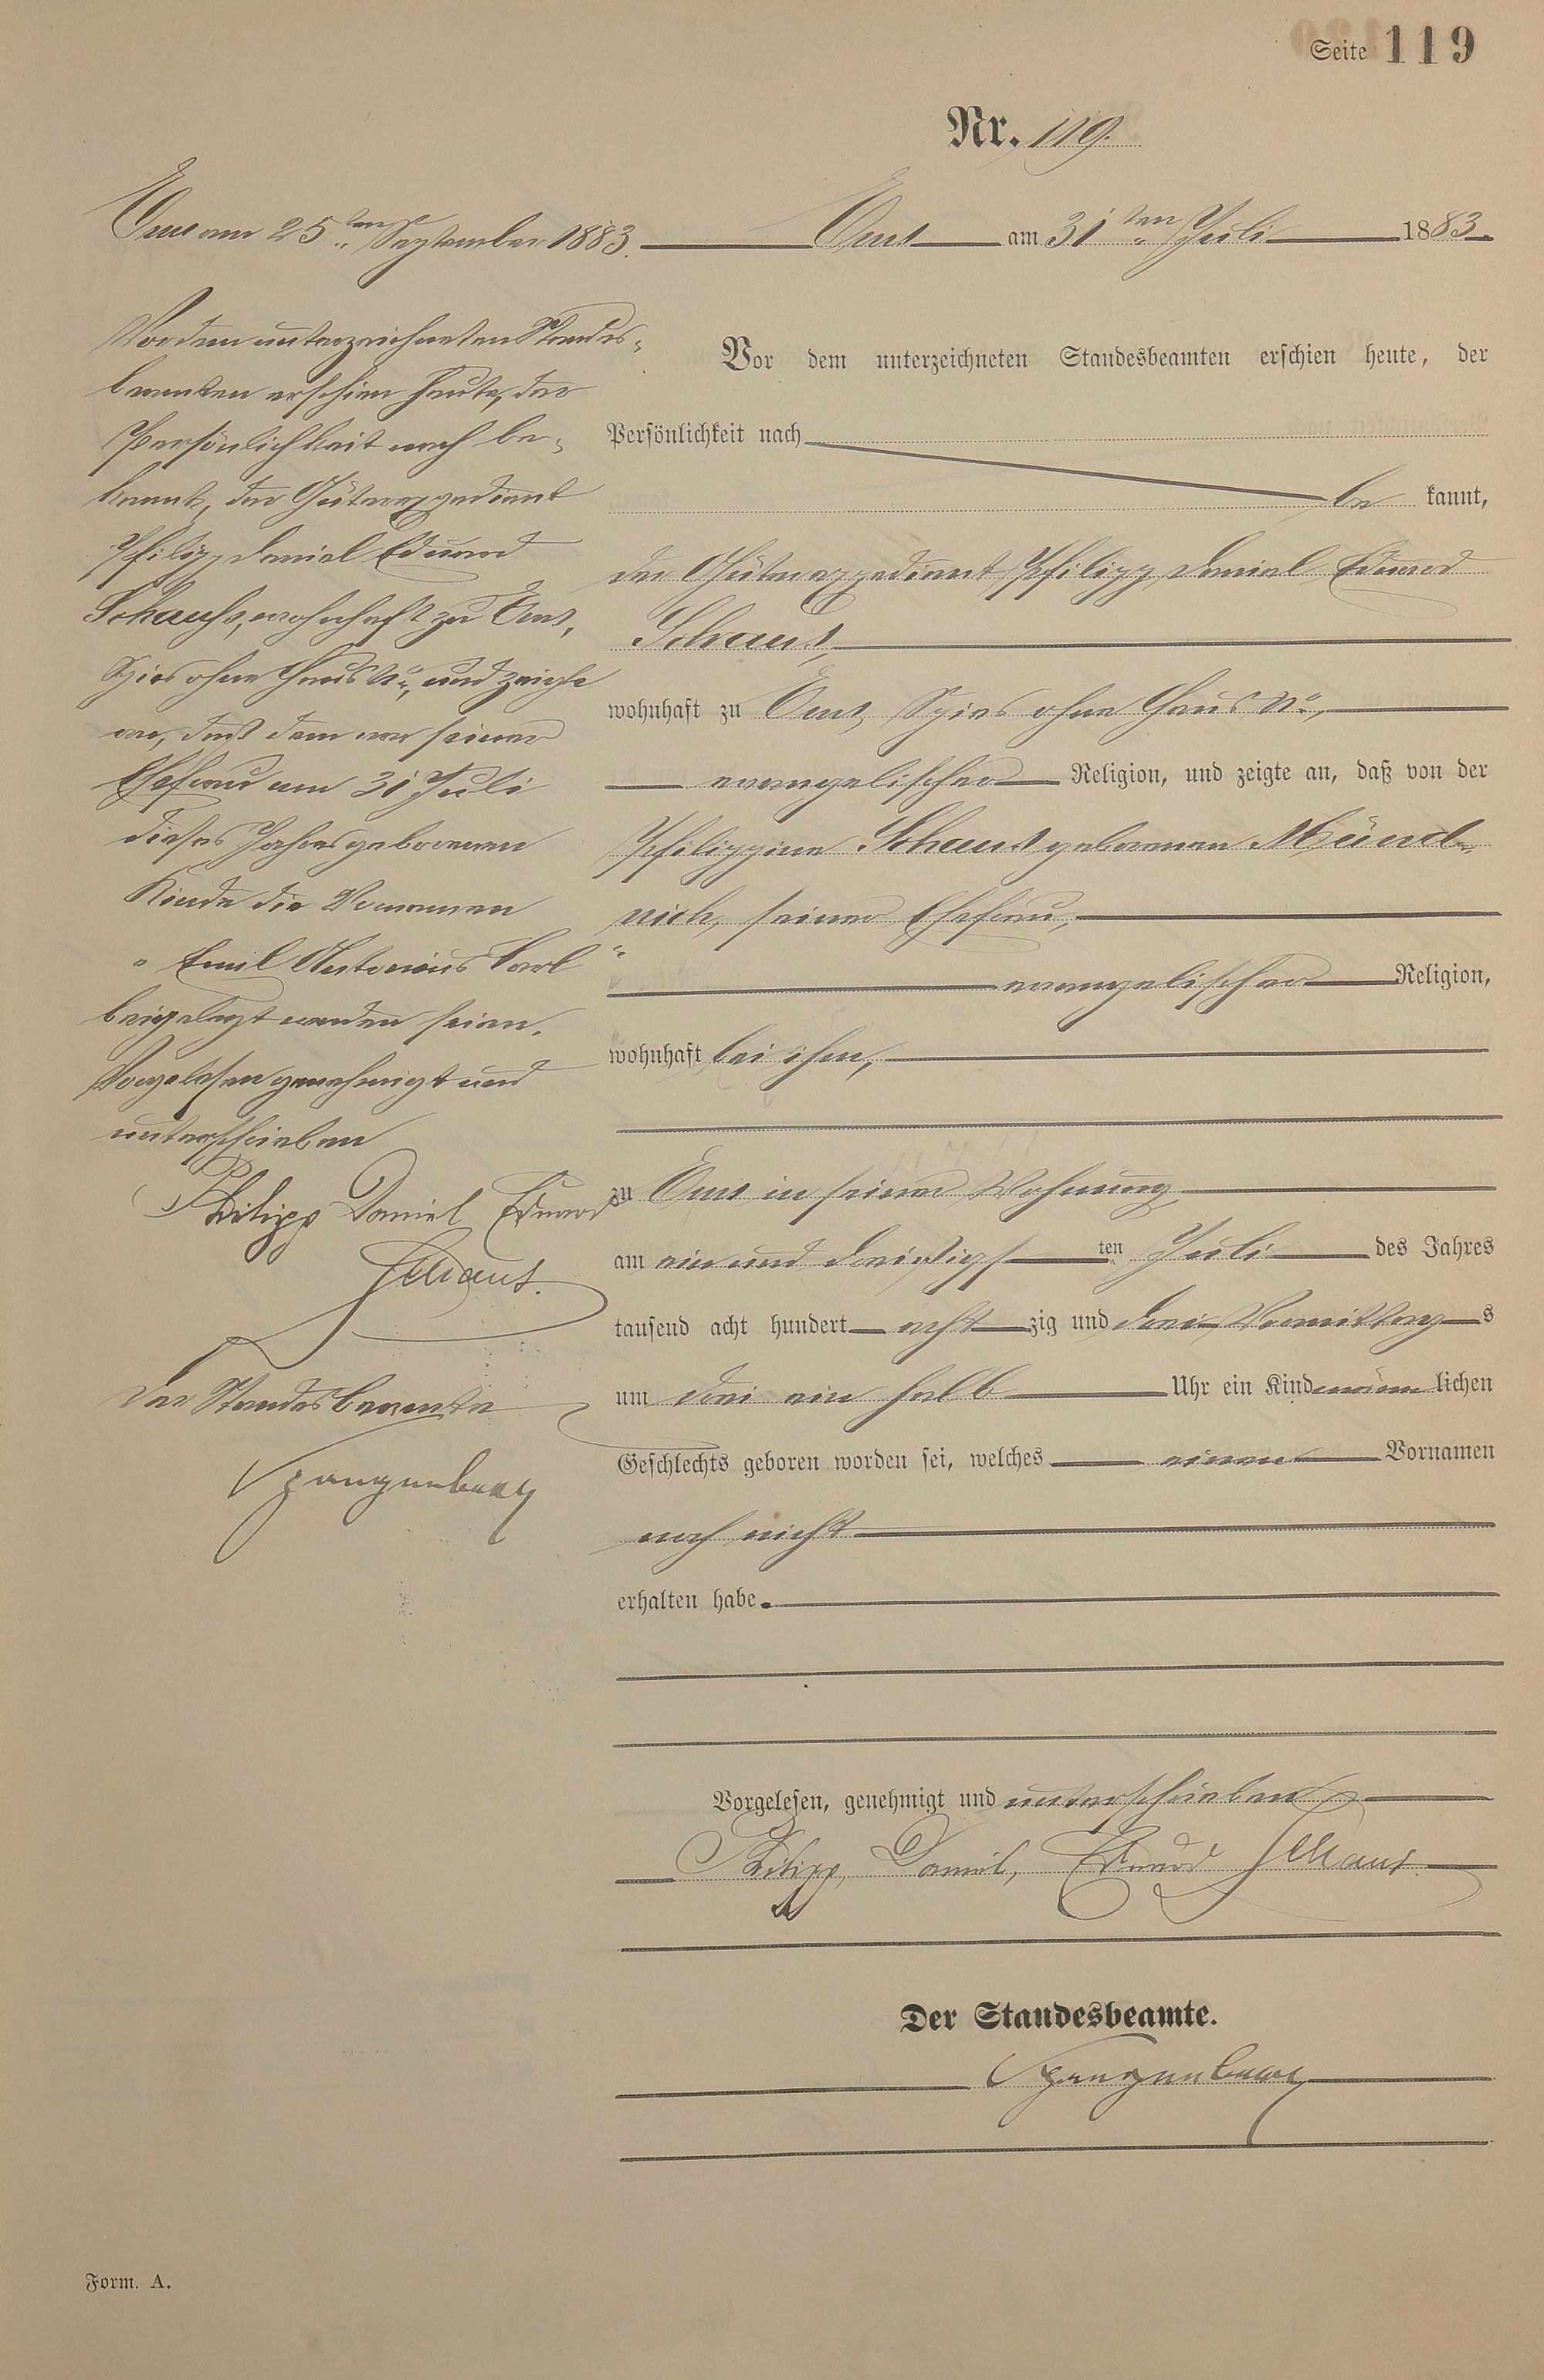 Seite 119
Nr. 119.
Ems am 25ten September 1883.
Vor dem unterzeichneten Standes-
beamten erschien heute, der
Persönlichkeit nach be-
kannt, der Güterexpedient
Philipp Daniel Eduard
Schauss, wohnhaft zu Ems,
Spies ohne Haus No, und zeigte
an, daß dem von seiner
Ehefrau am 31 Juli
dieses Jahres geborenen
Kinde die Vornamen
"Emil Antonius Carl"
beigelegt worden seien.
Vorgelesen genehmigt und
unterschrieben
Philipp Daniel Eduard
Schaus.
Der Standesbeamte
Spangenberg
Ems am 31ten Juli 1883.
Vor dem unterzeichneten Standesbeamten erschien heute, der
Persönlichkeit nach
be kannt,
der Güterexpedient Philipp Daniel Eduard
Schaus,
wohnhaft zu Ems, Spies ohne Haus No,
evangelischer Religion, und zeigte an, daß von der
Philippine Schaus geborenen Münd-
nich, seiner Ehefrau,
evangelischer Religion,
wohnhaft bei ihm,
zu Ems in seiner Wohnung
am ein und dreißigsten Juli des Jahres
tausend acht hundert acht zig und drei Vormittags
um drei ein halb Uhr ein Kind männlichen
Geschlechts geboren worden sei, welches einen Vornamen
noch nicht
erhalten habe.
Vorgelesen, genehmigt und unterschrieben
Philipp, Daniel, Eduard Schaus.
Der Standesbeamte.
Spangenberg
Form. A.